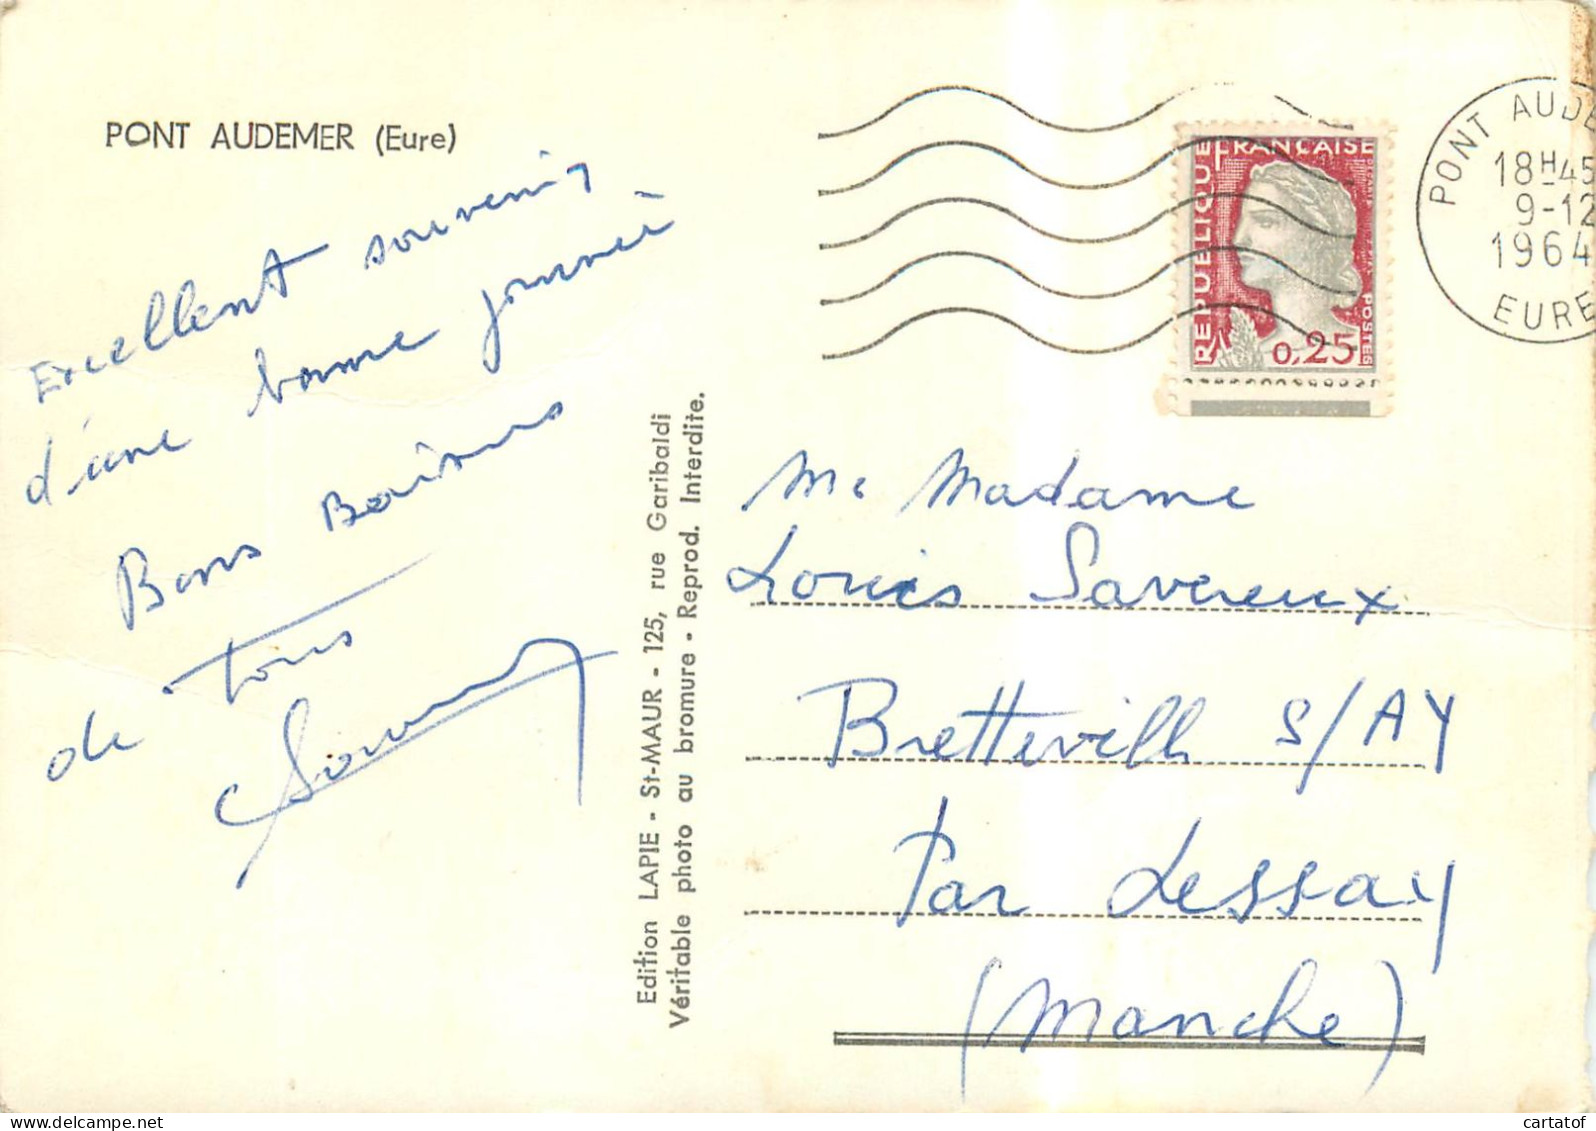 PONT AUDEMER (Eure)
Excellent souvenir
d'une bonne journée
Bons Baisers
de Tous
Edition LAPIE - St-MAUR - 125, rue Garibaldi
Véritable photo au bromure - Reprod. Interdite.
REPUBLIQUE FRANÇAISE
POSTES
0,25
PONT AUDE
18H45
9-12
1964
EURE
Me Madame
Louis Savereux
Bretteville S/AY
Par Lessay
(Manche)
cartatof